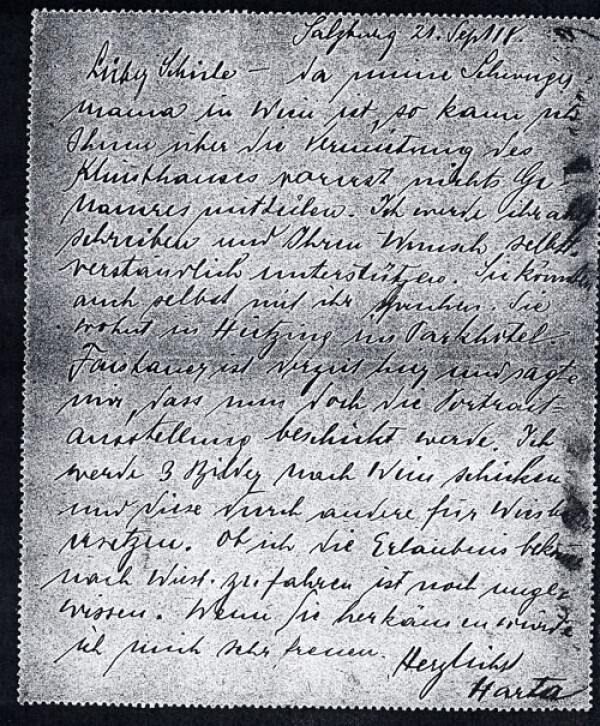 Salzburg 21. Sept 18.
Lieber Schiele – da meine Schwieger-
mama in Wien ist, so kann ich
Ihnen über die Vermietung des
Künsthauses vorerst nichts Ge-
naueres mitteilen. Ich werde ihr
schreiben und Ihren Wunsch selbst-
verständlich unterstützen. Sie könnten
auch selbst mit ihr sprechen. Sie
wohnt in Hietzing im Parkhotel.
Faistauer ist derzeit hier und sagte
mir, dass nun doch die Portrait-
ausstellung beschickt werde. Ich
werde 3 Bilder nach Wien schicken
und diese durch andere für
ersetzen. Ob ich die Erlaubnis
nach zu fahren ist noch unge-
wissen. Wenn Sie herkämen würde
ich mich sehr freuen. Herzlichst
Harta